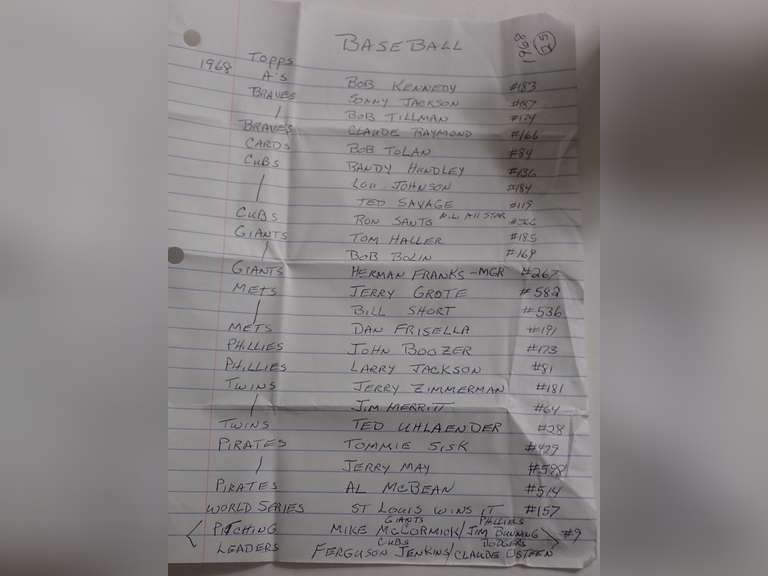 BASEBALL
1968 25
1968 TOPPS
A'S BOB KENNEDY #183
BRAVES SONNY JACKSON #187
/ BOB TILLMAN #174
BRAVES CLAUDE RAYMOND #166
CARDS BOB TOLAN #84
CUBS RANDY HUNDLEY #136
/ LOU JOHNSON #184
TED SAVAGE #119
CUBS RON SANTO N.L. ALL STAR
GIANTS TOM HALLER #185
/ BOB BOLIN #169
GIANTS HERMAN FRANKS - MGR #267
METS JERRY GROTE #582
/ BILL SHORT #536
METS DAN FRISELLA #191
PHILLIES JOHN BOOZER #173
PHILLIES LARRY JACKSON #81
TWINS JERRY ZIMMERMAN #181
/ JIM MERRITT #64
TWINS TED UHLAENDER #28
PIRATES TOMMIE SISK #429
/ JERRY MAY #598
PIRATES AL McBEAN #514
WORLD SERIES ST LOUIS WINS IT #157
GIANTS PHILLIES
PITCHING MIKE McCORMICK/JIM BUNNING #9
CUBS DODGERS
LEADERS FERGUSON JENKINS/CLAUDE OSTEEN